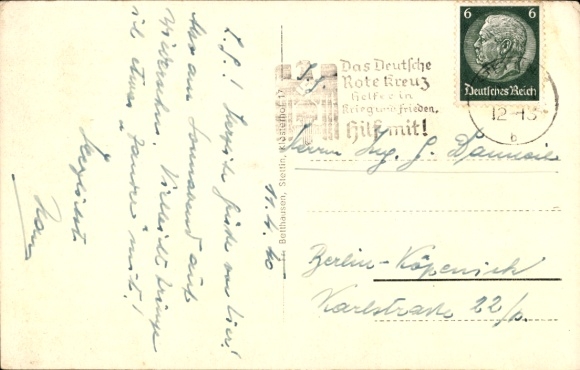 L. G.! Herzliche Grüße von hier!
Also am Sonnabend auf
Wiedersehn. Vielleicht bringe
ich etwas "Zander" mit!
Herzlichst
Hans
11. 4. 40
Botthausen, Stettin, Klosterhof 17
Das Deutsche
Rote Kreuz
helfe in
Krieg und Frieden,
Hilf mit!
6 6
Deutsches Reich
12-13
b
Herrn Ing. G.
Berlin-Köpenick
Karlstrasse 22/p.